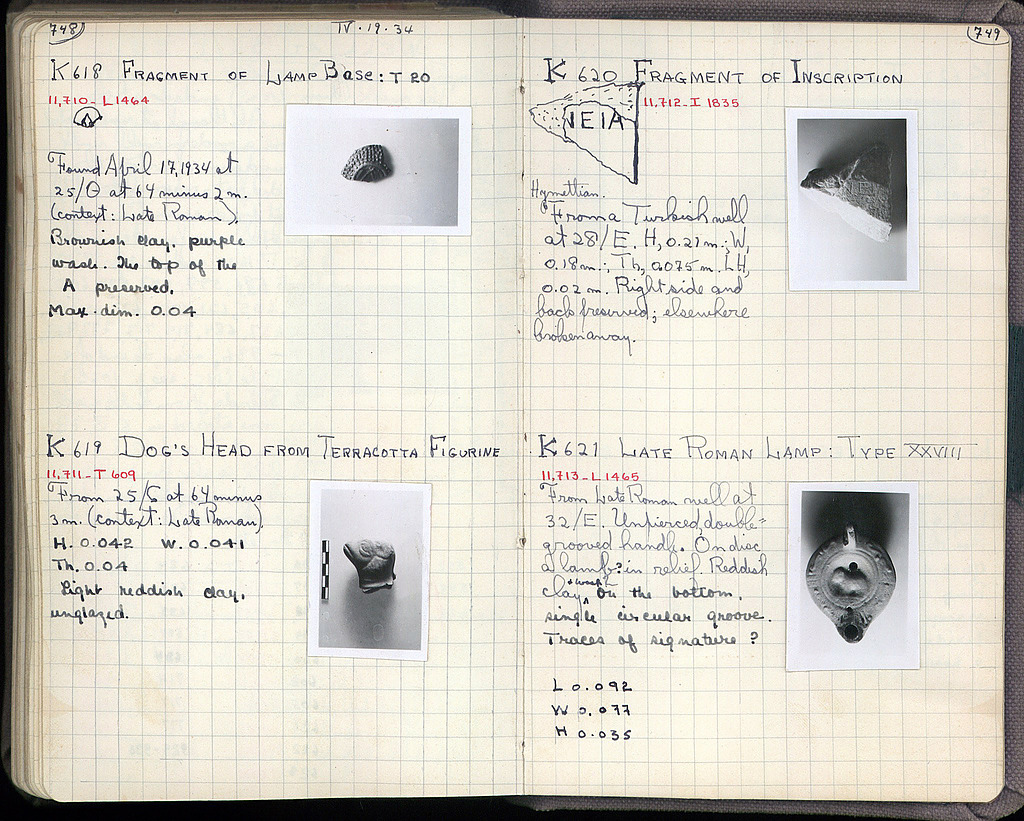 748
IV·19·34
K 618 FRAGMENT OF LAMP BASE: T 20
11,710-L1464
Found April 17, 1934 at
25/Θ at 64 minus 2 m.
(context: Late Roman).
Brownish clay. purple
wash. The top of the
A preserved.
Max. dim. 0.04
K 619 DOG'S HEAD FROM TERRACOTTA FIGURINE
11,711-T 609
From 25/ at 64 minus
3 m. (context: Late Roman).
H. 0.042 W. 0.041
Th. 0.04
Light reddish clay,
unglazed.
749
K 620 FRAGMENT OF INSCRIPTION
11,712-I 1835
NEIA
Hymettian.
From a Turkish well
at 28/E. H, 0.21 m.; W,
0.18 m.; Th, 0.075 m. LH,
0.02 m. Right side and
back preserved; elsewhere
broken away.
K 621 LATE ROMAN LAMP: TYPE XXVIII
11,713-L1465
From Late Roman well at
32/E. Unpierced, double=
grooved handle. On disc
a lamb? in relief. Reddish
clay + wash. On the bottom,
single circular groove.
Traces of signature ?
L 0.092
W 0.077
H 0.035